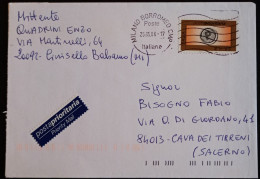 Mittente
QUADRINI ENZO
VIA Martinelli, 64
20092- Cinisello Balsamo (MI)
MILANO BORROMEO CMP
Poste
Italiane
postaprioritaria
Priority Mail
Signor
BISOGNO FABIO
VIA D. DI GIORDANO, 41
84013- CAVA DEI TIRRENI
(SALERNO)